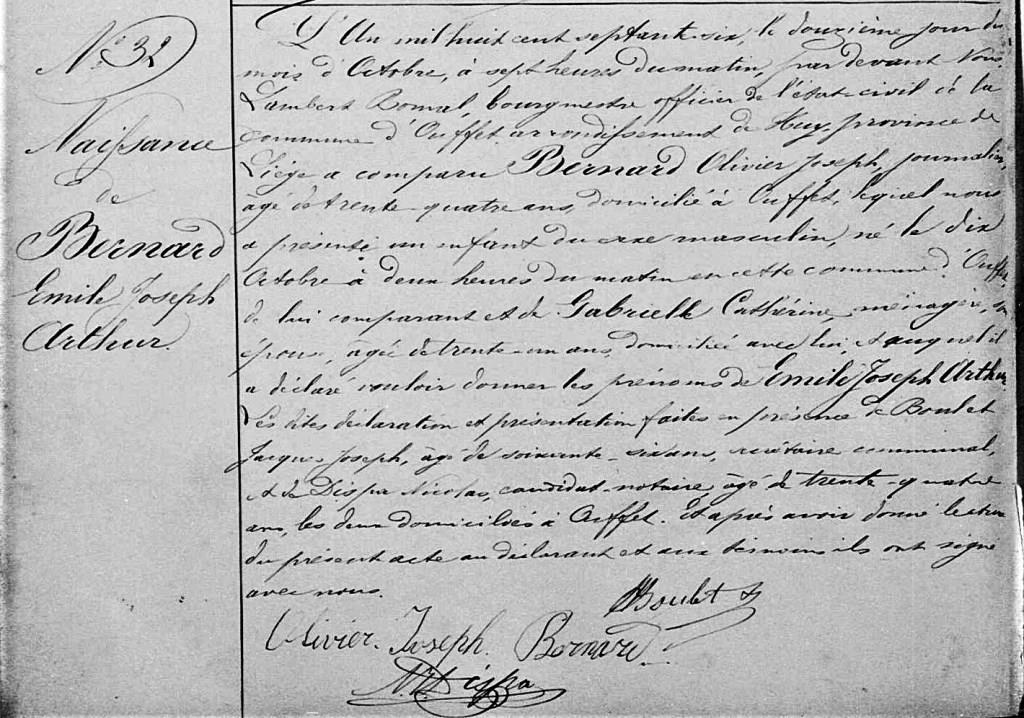 N° 32
Naissance
de
Bernard
Emile Joseph
Arthur.
L'An mil huit cent septante-six, le douzième jour du
mois d'Octobre, à sept heures du matin, par devant Nous
Lambert Bomal, bourgmestre officier de l'état-civil de la
commune d'Ouffet arrondissement de Huy, province de
Liège a comparu Bernard Olivier Joseph, journalier,
âgé de trente-quatre ans, domicilié à Ouffet, lequel nous
a présenté un enfant du sexe masculin, né le dix
Octobre à deux heures du matin en cette commune d'Ouffet
de lui comparant et de Gabrielle Cathérine, ménagère, son
épouse, âgée de trente-un ans, domiciliée avec lui, et auquel il
a déclaré vouloir donner les prénoms de Emile Joseph Arthur
Les dites déclaration et présentation faites en présence de Boulet
Jacques Joseph, âgé de soixante-six ans, secrétaire communal,
et de Dispa Nicolas, candidat-notaire, âgé de trente-quatre
ans, les deux domiciliés à Ouffet. Et après avoir donné lecture
du présent acte au déclarant et aux témoins ils ont signé
avec nous.
Boulet
Olivier. Joseph. Bernard.
N. Dispa